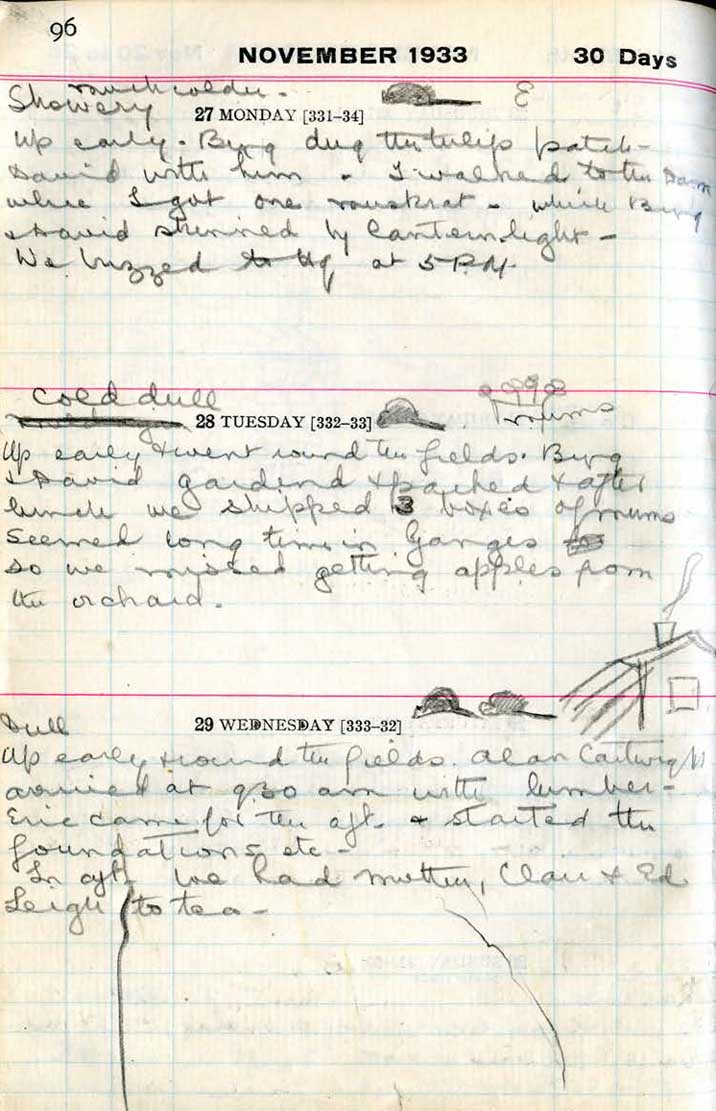 96
NOVEMBER 1933 30 Days
much colder.
Showery
27 MONDAY [331-34] E
Up early. Burg dug the tulip patch -
David with him. I walked to the Dam
where I got one muskrat - which Burg
+ David skinned by lantern light -
We buzzed to Hq at 5 P.M.
cold dull
28 TUESDAY [332-33] mums
Up early & went round the fields. Burg
& David gardened & packed & after
lunch we shipped 3 boxes of mums
Seemed long time in Ganges
so we missed getting apples from
the orchard.
Dull
29 WEDNESDAY [333-32]
Up early & round the fields. Alan Cartwright
arrived at 930 am with lumber -
Eric came for the aft. & started the
foundations etc -
In aft we had Clare & Ed
Leigh to tea -